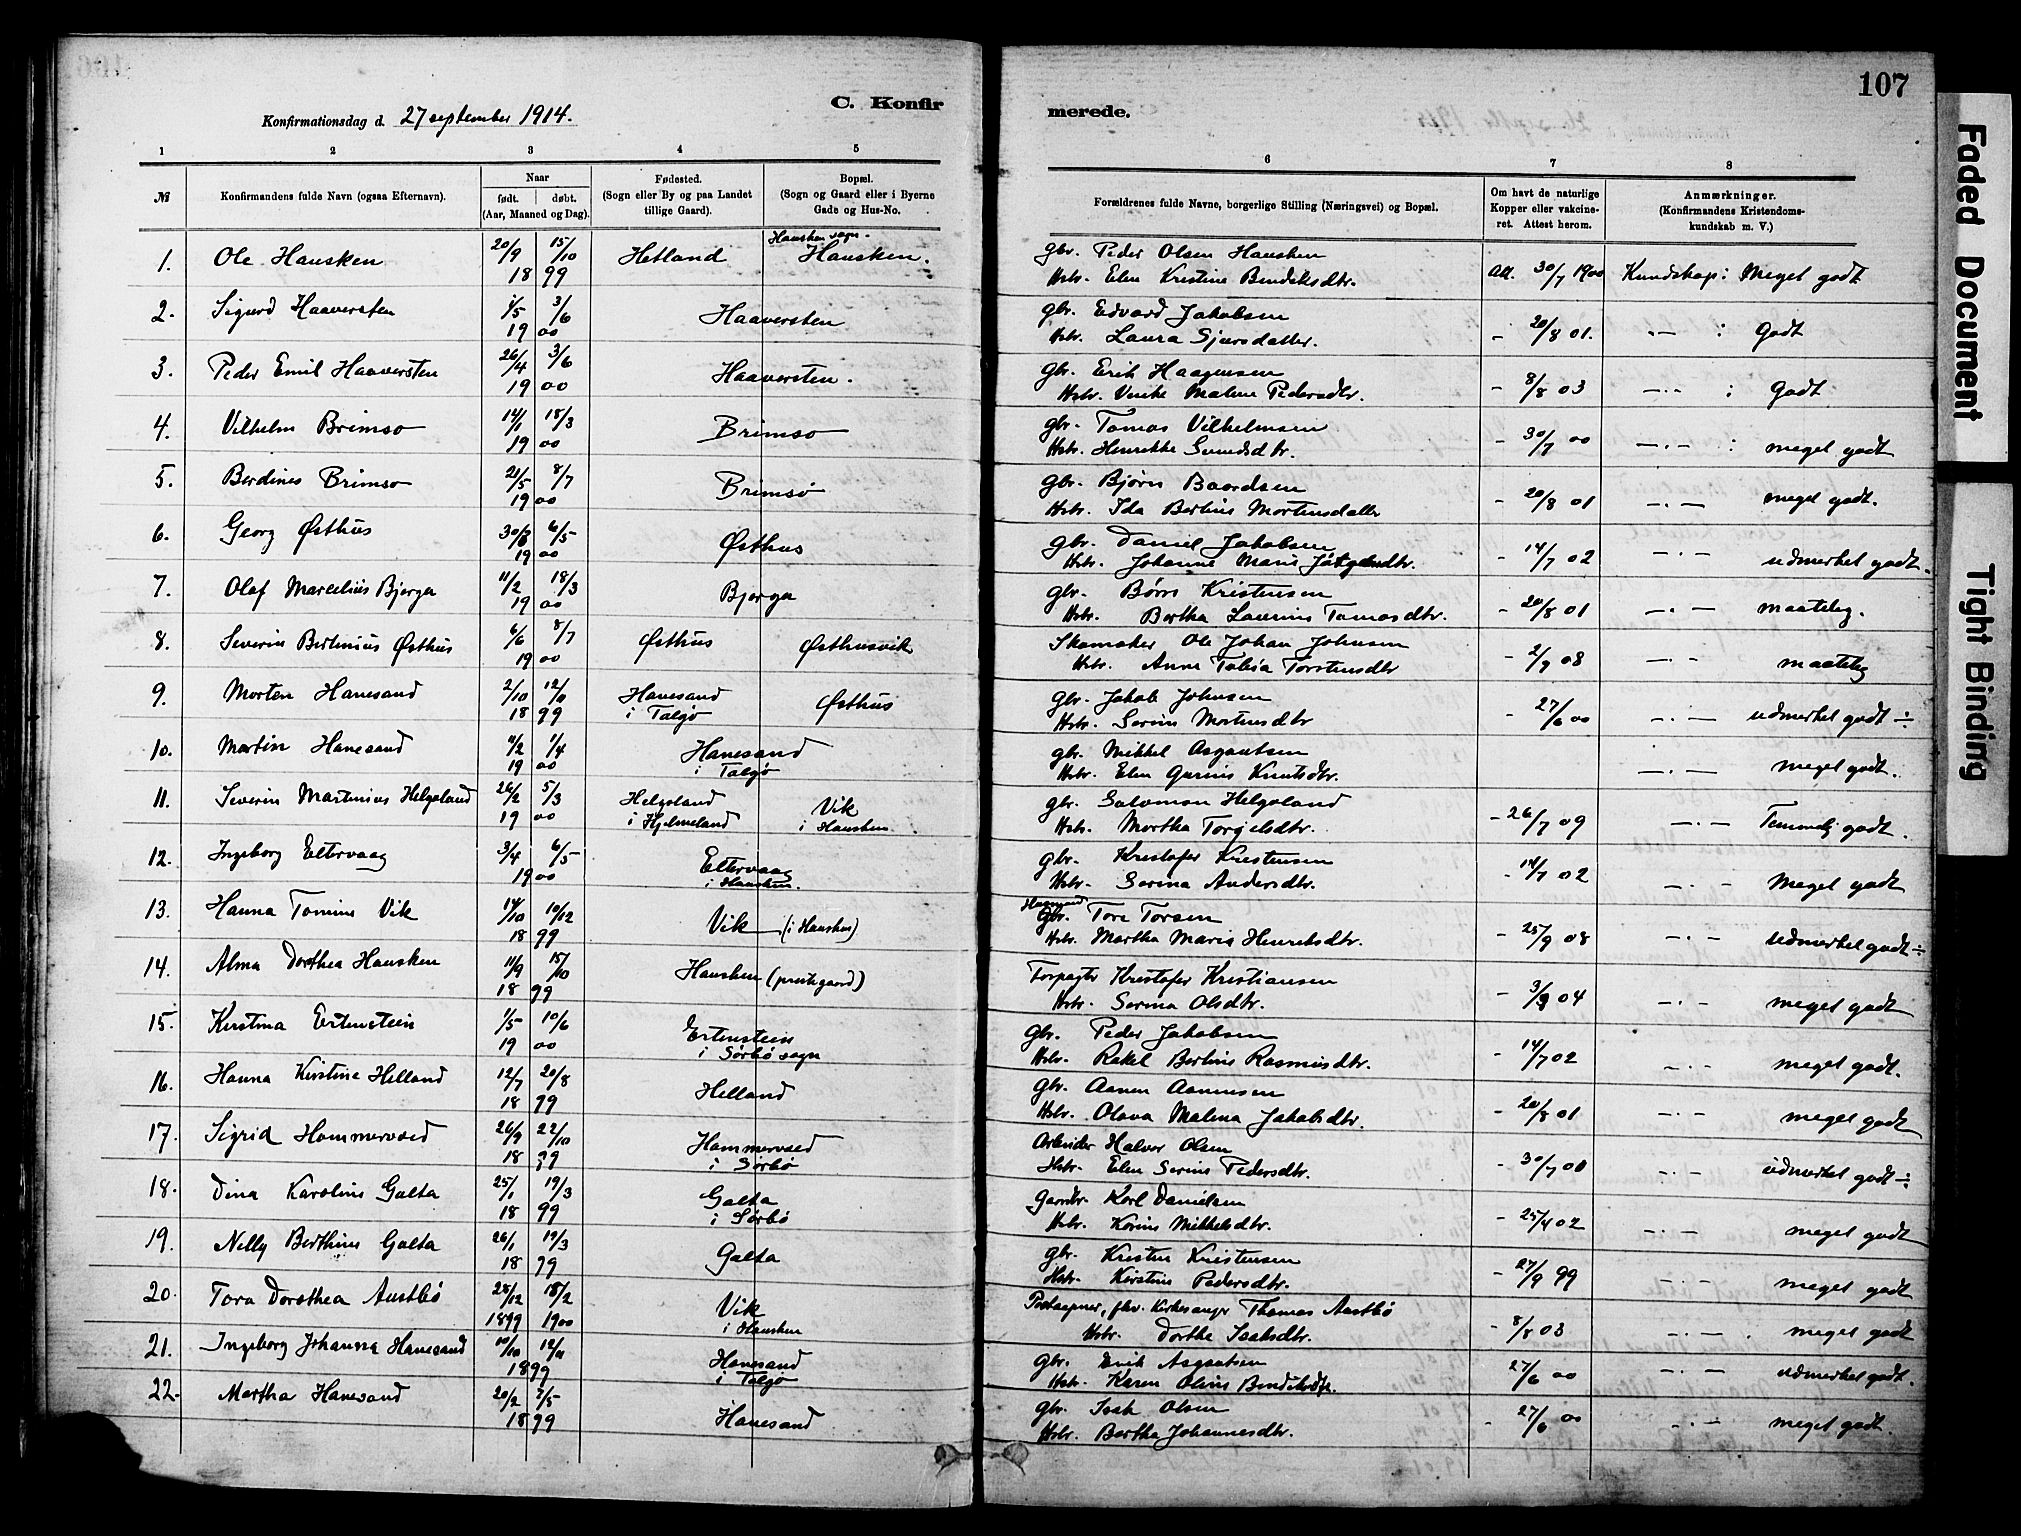 107
C. Konfirmerede.
Konfirmationsdag d. 27 september 1914.
1 2 3 4 5 6 7 8
№ Konfirmandens fulde Navn (ogsaa Efternavn). Naar født. døbt. (Aar, Maaned og Dag). Fødested. (Sogn eller By og paa Landet tillige Gaard). Bopæl. (Sogn og Gaard eller i Byerne Gade og Hus-No. Forældrenes fulde Navne, borgerlige Stilling (Næringsvei) og Bopæl. Om havt de naturlige Kopper eller vakcineret. Attest herom. Anmærkninger. (Konfirmandens Kristendomskundskab m. V.)
1. Ole Hausken 20/9 15/10 1899 Hetland Hausken sogn. Hausken. gbr. Peder Olsen Hausken Att. 30/7 1900 Kundskap: Meget godt
Hstr. Elen Kristine Bendiksdtr.
2. Sigurd Haaversten 1/5 3/6 1900 Haaversten gbr. Edvard Jakobsen - 20/8 01. -"- : Godt
Hstr. Laura Sjursdatter.
3. Peder Emil Haaversten 26/4 3/6 1900 Haaversten. gbr. Erik Haagensen - 8/8 03 -"- : Godt
Hstr. Malene Pedersdtr.
4. Vilhelm Brimsø 14/1 18/3 1900 Brimsø gbr. Tomas Vilhelmsen - 30/7 00 -"- : meget godt
Hstr. Henrikke
5. Berdines Brimsø 21/5 8/7 1900 Brimsø gbr. Bjørn Baardsen - 20/8 01 -"- meget godt.
Hstr. Ida Bertine Mortensdatter
6. Georg Østhus 6/5 1900 Østhus gbr. Daniel Jakobsen - 14/7 02 -"- udmerket godt.
Hstr. Johanne Marie
7. Olaf Marcelius Bjerga 11/2 18/3 1900 Bjerga gbr. Kristensen - 20/8 01 -"- maatelig.
Hstr. Bertha Laurine Tomasdtr.
8. Severin Bertinius Østhus 6/6 8/7 1900 Østhus Østhusvik Skomaker Ole Johan Johnsen - 2/9 08 -"- maatelig
Hstr. Anne Tobia Torstensdtr
9. Morten Hanesand 2/10 1899 Hanesand i Talgø Østhus gbr. Jakob Johnsen - 27/6 00 -"- udmerket godt ÷
Hstr. Serine Mortensdtr
10. Martin Hanesand 11/2 1/4 1900 Hanesand i Talgø gbr. Mikkel Asgautsen -"- meget godt.
Hstr. Elen Gurine Knutsdtr.
11. Severin Martinius Helgoland 26/2 5/3 1900 Helgoland i Hjelmeland Vik i Hausken gbr. Salomon Helgoland - 26/7 09 -"- Temmelig godt.
Hstr. Martha Torgelsdtr.
12. Ingeborg Eltervaag 3/4 6/5 1900 Eltervaag i Hausken. gbr. Kristofer Kristensen - 14/7 02 -"- Meget godt
Hstr. Serina Andersdtr.
13. Hanna Tomine Vik 14/10 10/12 1899 Vik (i Hausken) Gbr. Tore Torsen - 25/9 08 -"- udmerket godt ÷
Hstr. Martha Maria Henriksdtr.
14. Alma Dorthea Hausken 11/9 15/10 1899 Hausken (prestegaard) Forpagter Kristofer Kristiansen - 3/9 04 -"- meget godt
Hstr. Serina Olsdtr.
15. Kirstina Ertenstein 1/5 10/6 1900 Ertenstein i Sørbø sogn Gbr. Peder Jakobsen - 14/7 02 -"- meget godt.
Hstr. Rakel Bertine Rasmusdtr.
16. Hanna Kirstine Helland 12/7 20/8 1899 Helland Gbr. Aanen Aanensen - 20/8 01 -"- meget godt
Hstr. Olava Malena Jakobsdtr.
17. Sigrid Hammervold 26/9 22/10 1899 Hammervold i Sørbø Arbeider Halvor Olsen - 30/7 00 -"- udmerket godt ÷
Hstr. Elen Serine Pedersdtr.
18. Dina Karoline Galta 25/1 19/3 1899 Galta i Sørbø Gaardbr. Karl Danielsen - 25/4 02 -"- meget godt
Hstr. Karine Mikkelsdtr.
19. Nelly Berthine Galta 26/1 19/3 1899 Galta gbr. Kristen Kristensen - 27/9 99 -"- meget godt
Hstr. Kirstine Pedersdtr.
20. Tora Dorothea Austbø 28/12 1899 18/2 1900 Vik i Hausken Postaapner, fhv. Kirkesanger Thomas Austbø - 8/8 03 -"- meget godt
Hstr. Dorthe Isaksdtr.
21. Ingeborg Johanna Hanesand 10/10 12/11 1899 Hanesand i Talgø Gbr. Erik Asgautsen - 27/6 00 -"- udmerket godt.
Hstr. Karen Oline Bendiksdtr.
22. Martha Hanesand 20/2 7/5 1899 Hanesand Gbr. Isak Olsen - 27/6 00 -"- meget godt.
Hstr. Bertha Johannesdtr.
Faded Document
Tight Binding